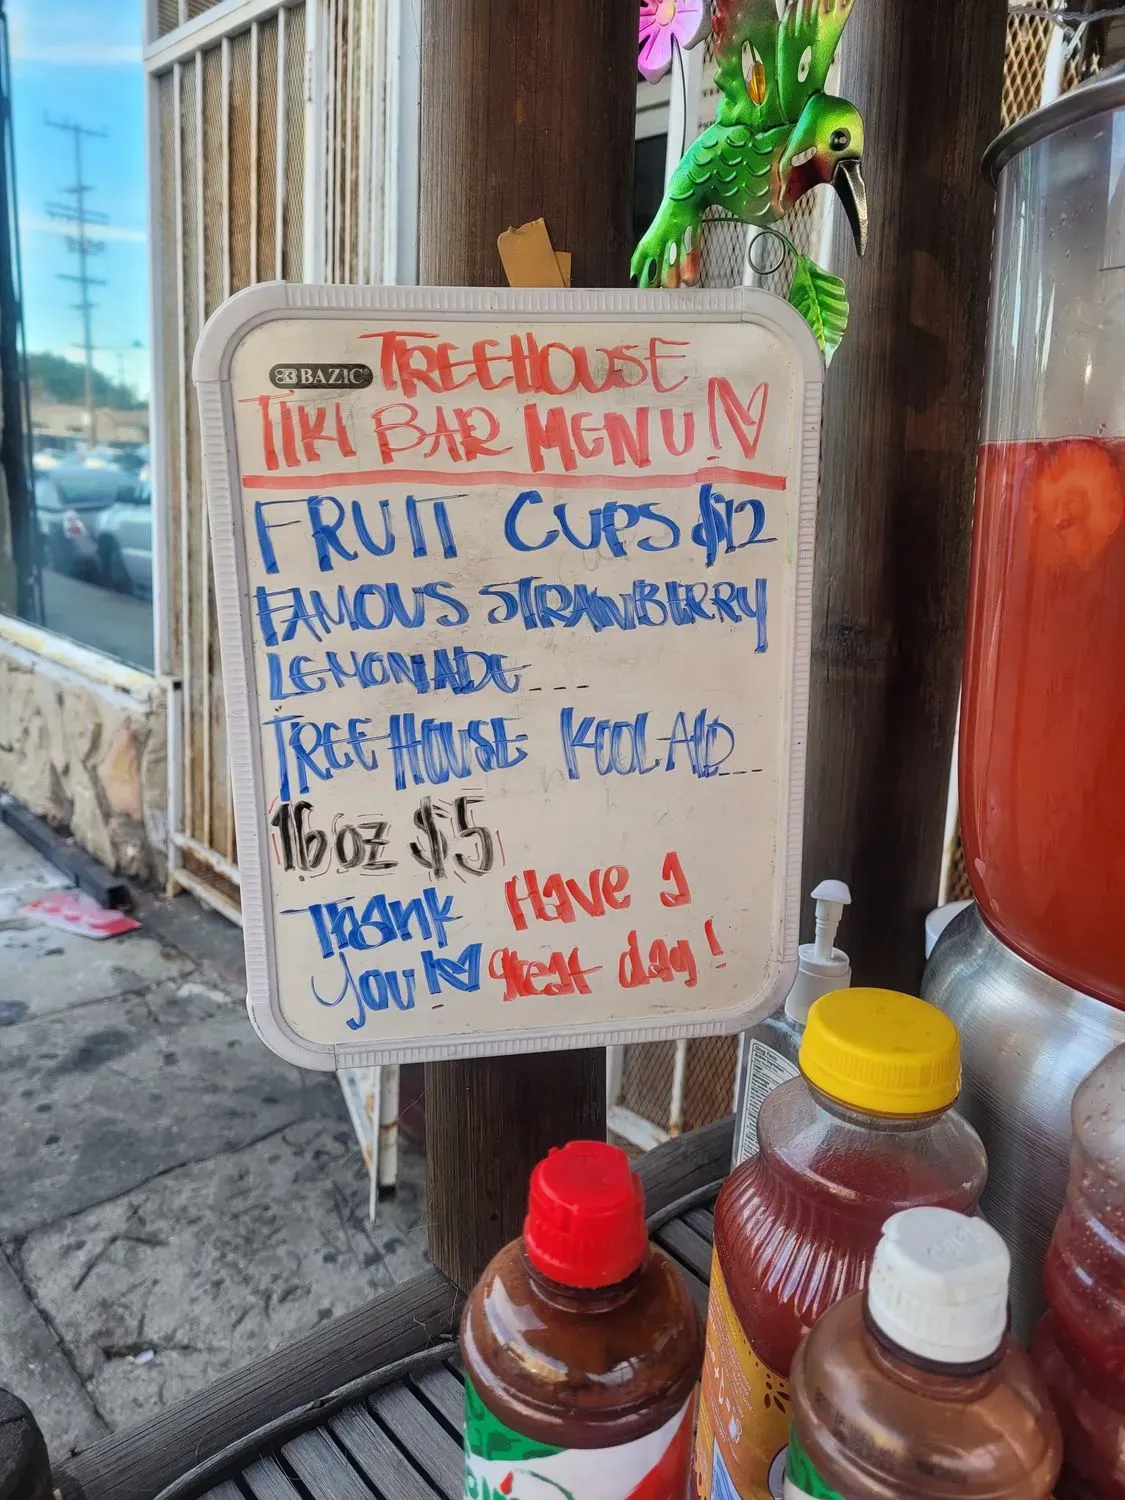 BAZIC
TREEHOUSE
TIKI BAR MENU!
FRUIT CUPS $12
FAMOUS STRAWBERRY
LEMONADE___
TREEHOUSE KOOLAID___
16oz $5
Thank
you!
Have a
great day!